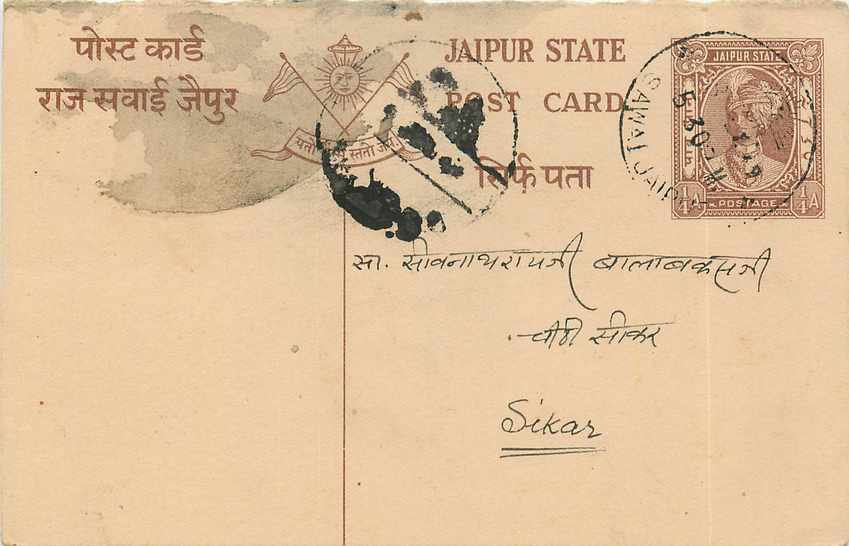 पोस्ट कार्ड
राज सवाई जैपुर
JAIPUR STATE
POST CARD
सिर्फ़ पता
JAIPUR STATE
POSTAGE
1/4 A
1/4 A
SAWAI JAIPUR
सा. सीवनाथरायजी बालाबकसजी
चीठी सीकर
Sikar